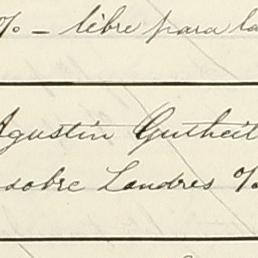 % - libre para la
Agustin Gutheil
sobre Londres %